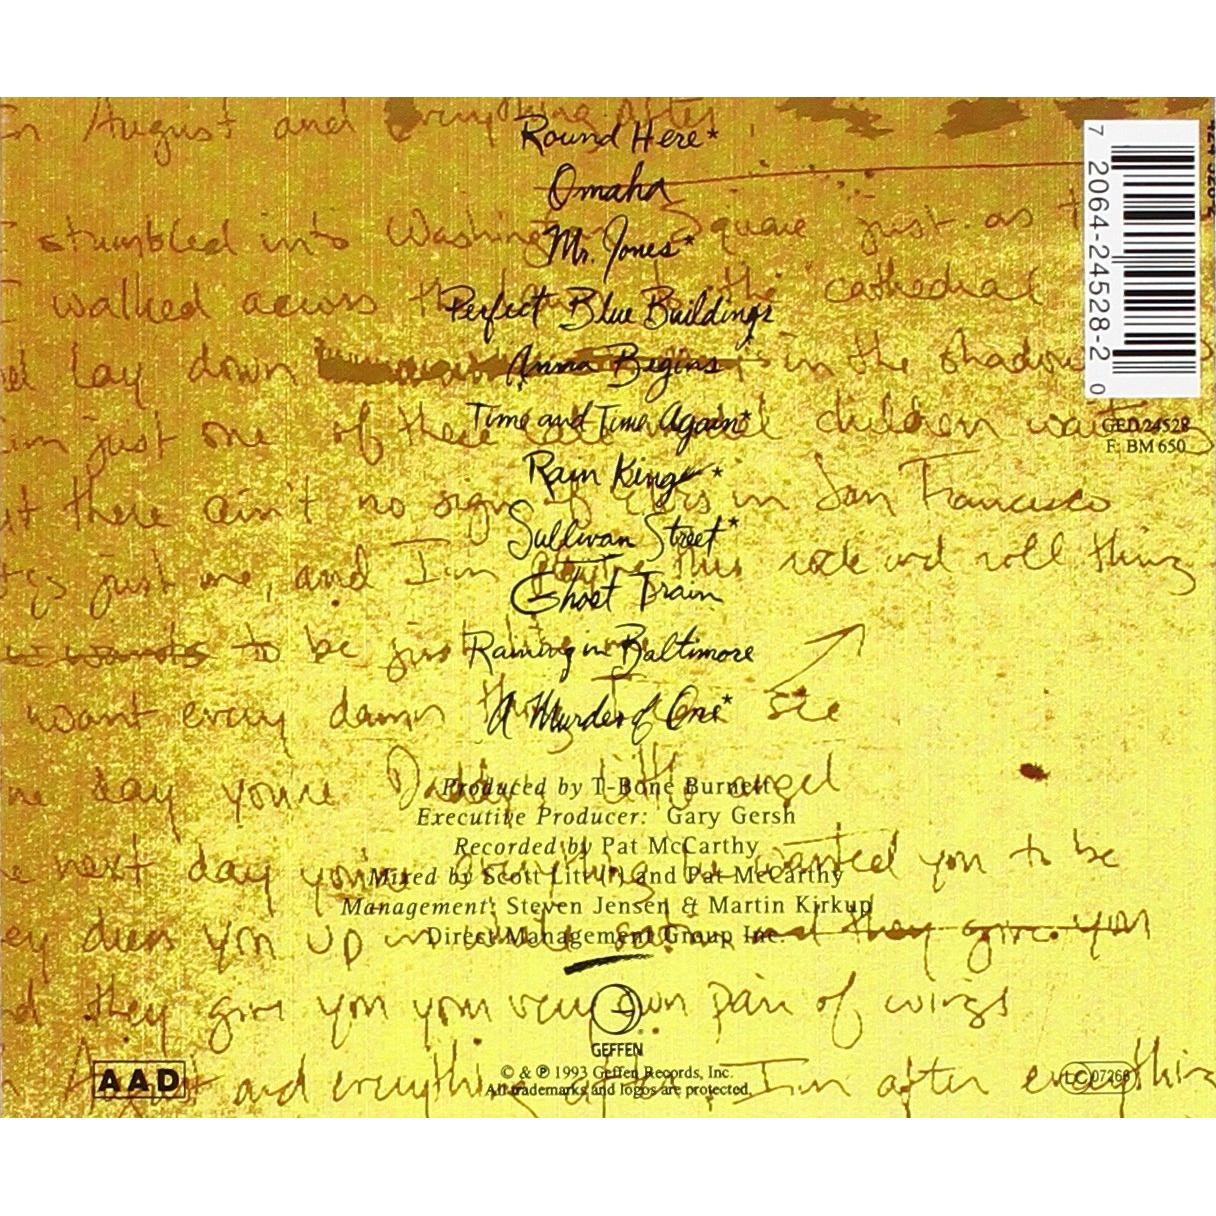 In August and Everything After,
Round Here*
Omaha
stumbled into Washington Square just as
Mr. Jones*
I walked across the cathedral
Perfect Blue Buildings
lay down in the shadow
Anna Begins
just one of these children waiting
Time and Time Again*
Rain King*
there ain't no sign of in San Francisco
Sullivan Street*
just me, and I'm playing this rock and roll thing
Ghost Train
wants to be just
Raining in Baltimore
want every damn thing I see
A Murder of One*
day you're Daddy's little angel
Produced by T-Bone Burnett
Executive Producer: Gary Gersh
Recorded by Pat McCarthy
next day you're everything he wanted you to be
Mixed by Scott Litt (*) and Pat McCarthy
Management: Steven Jensen & Martin Kirkup
dress you up in and they give you
Direct Management Group Inc.
they give you your very own pair of wings
GEFFEN
August and everything after I'm after everything
© & ℗ 1993 Geffen Records, Inc.
All trademarks and logos are protected.
AAD
LC 07266
7 2064-24528-2 0
GED24528
F: BM 650